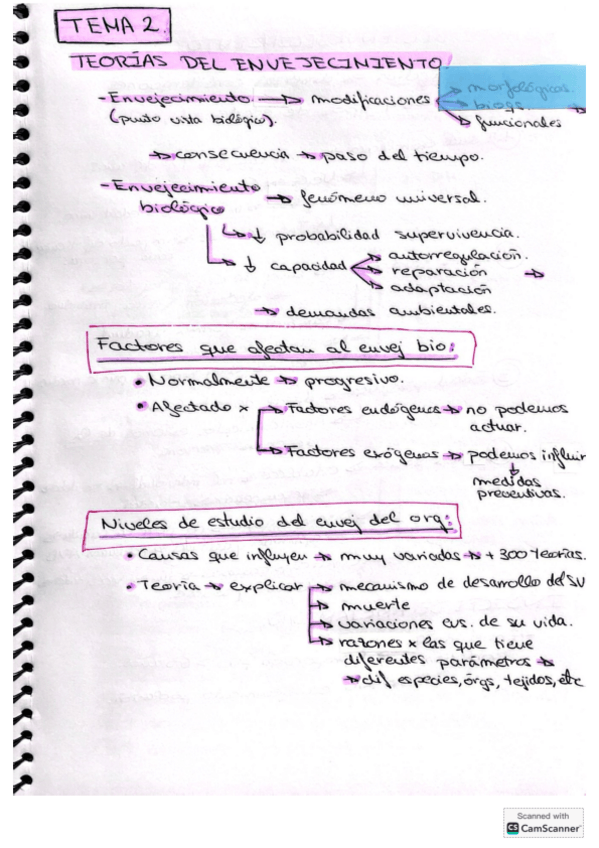 TEMA 2.
TEORÍAS DEL ENVEJECIMIENTO
- Envejecimiento → modificaciones → morfológicas.
(punto vista biológico). → biogs. →
→ funcionales
→ consecuencia → paso del tiempo.
- Envejecimiento biológico → fenómeno universal.
→ ↓ probabilidad supervivencia.
→ ↓ capacidad → autorregulación.
→ reparación →
→ adaptación
→ demandas ambientales.
Factores que afectan al envej bio:
• Normalmente → progresivo.
• Afectado x → Factores endógenos → no podemos
actuar.
→ Factores exógenos → podemos influir
↓
medidas
preventivas.
Niveles de estudio del envej del org:
• Causas que influyen → muy variadas → + 300 teorías.
• Teoría → explicar → mecanismo de desarrollo del SV
→ muerte
→ variaciones cvs. de su vida.
→ razones x las que tiene
diferentes parámetros →
→ dif. especies, órgs, tejidos, etc
Scanned with
CS CamScanner